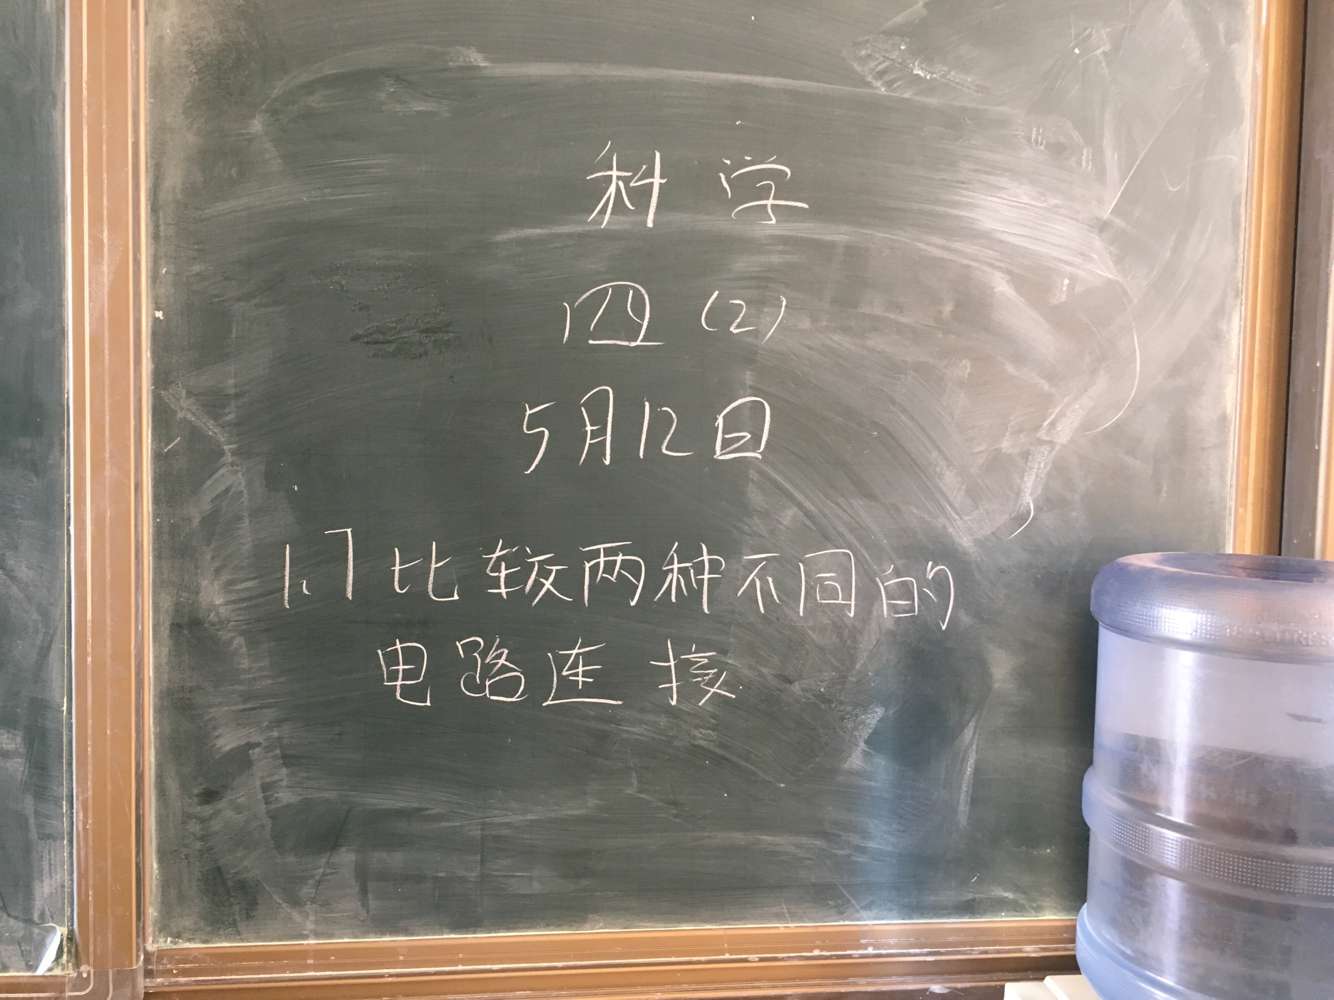 科学
四(2)
5月12日
1.7比较两种不同的
电路连接